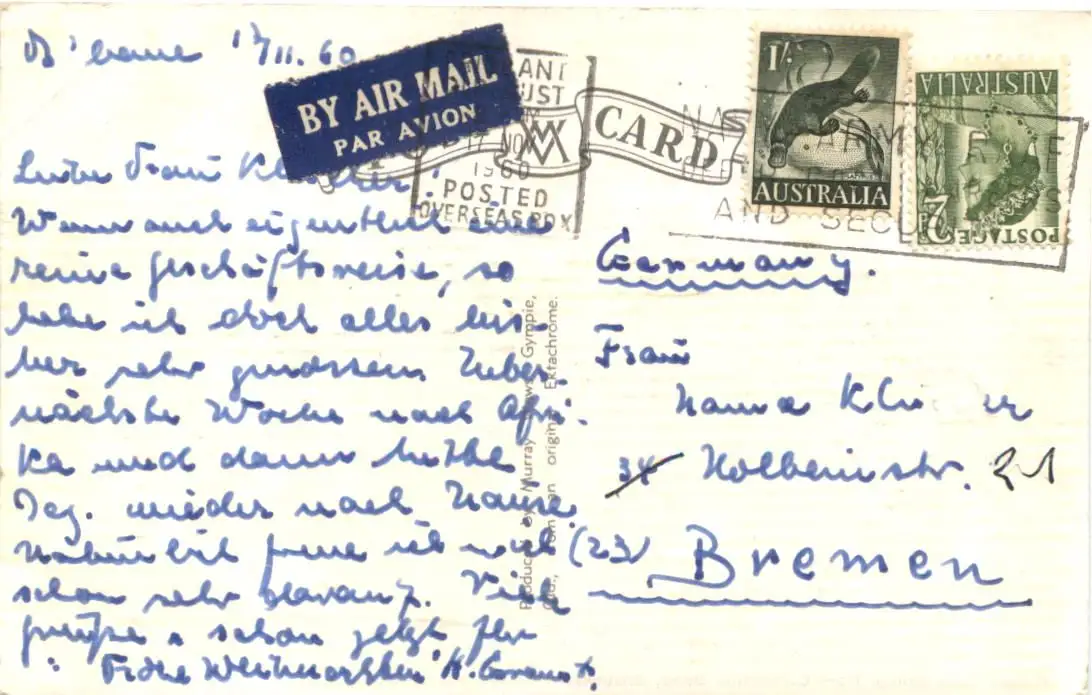 B'bane 17/11.60
BY AIR MAIL
PAR AVION
17 NOV
1960
POSTED
OVERSEAS BOX
CARD
1/-
AUSTRALIA
AUSTRALIA
2D
POSTAGE
AND
Liebe Frau
Wenn auch eigentlich eine
reine Geschäftsreise, so
habe ich doch alles bis-
her sehr genossen. Ueber-
nächste Woche nach Afri-
ka und dann Mitte
Dez. wieder nach Hause.
Natürlich freue ich mich
schon sehr darauf. Viele
Grüße u. schon jetzt
"Frohe Weihnachten" H.
Germany.
Frau
Hanna
34 Holbeinstr.
(23) Bremen
Produced by Murray Views, Gympie,
Qld., from an original Ektachrome.